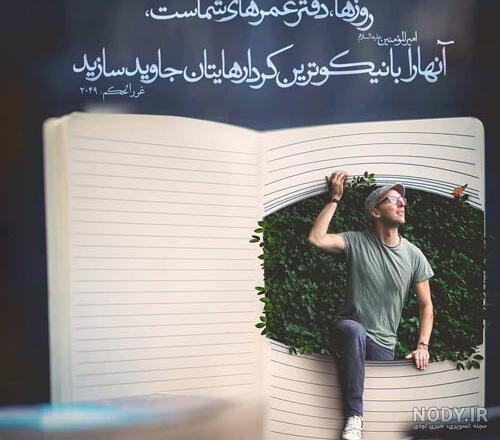 روزها، دفتر عمرهای شماست،
امیرالمؤمنین علیه‌السلام
آنها را با نیکوترین کردارهایتان جاوید سازید
غررالحکم، ۲۰۴۹
NODY.IR
مجله تصویری، خبری نودی